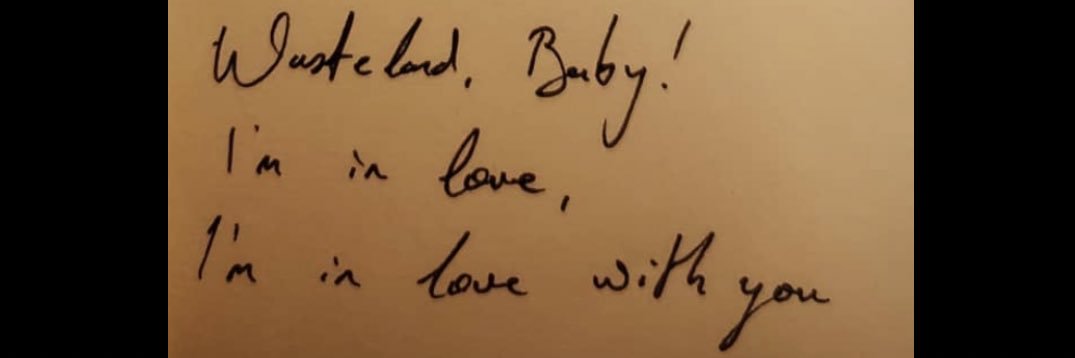 Wasteland, Baby!
I'm in love,
I'm in love with you